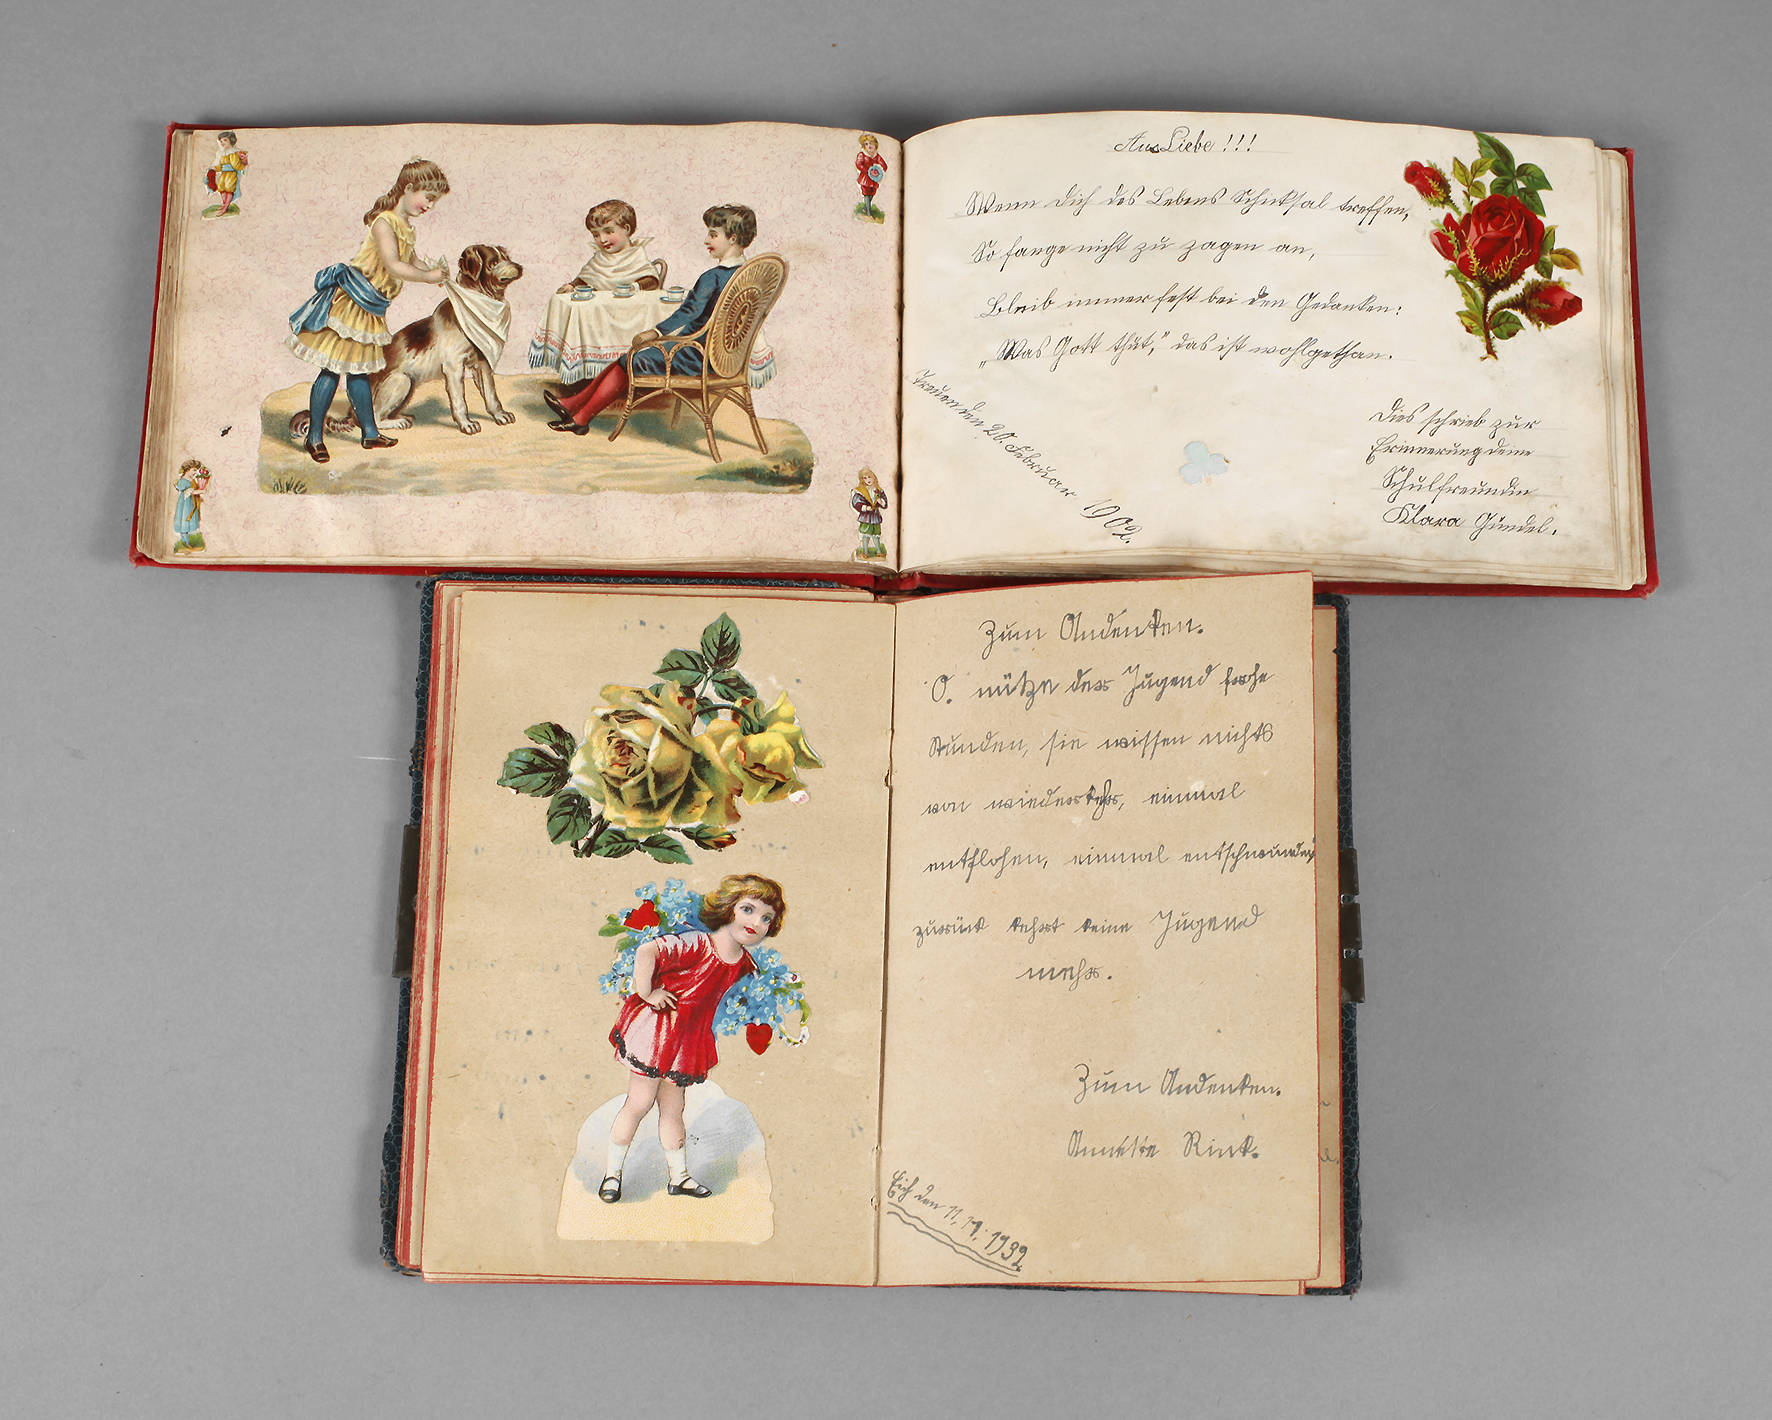 Aus Liebe!!!
Wenn dich des Lebens Schicksal treffen,
So fange nicht zu zagen an,
Bleib immer fest bei den Gedanken:
„Was Gott thut,“ das ist wohlgethan.
Treuen den 20. Februar 1902.
Dies schrieb zur
Erinnerung deine
Schulfreundin
Klara Gündel.
Zum Andenken.
O. nütze der Jugend frohe
Stunden, sie wissen nichts
von wiederkehr, einmal
entflohen, einmal entschwunden
zurück kehrt keine Jugend
mehr.
Zum Andenken.
Rink.
Eich den 11. 1932